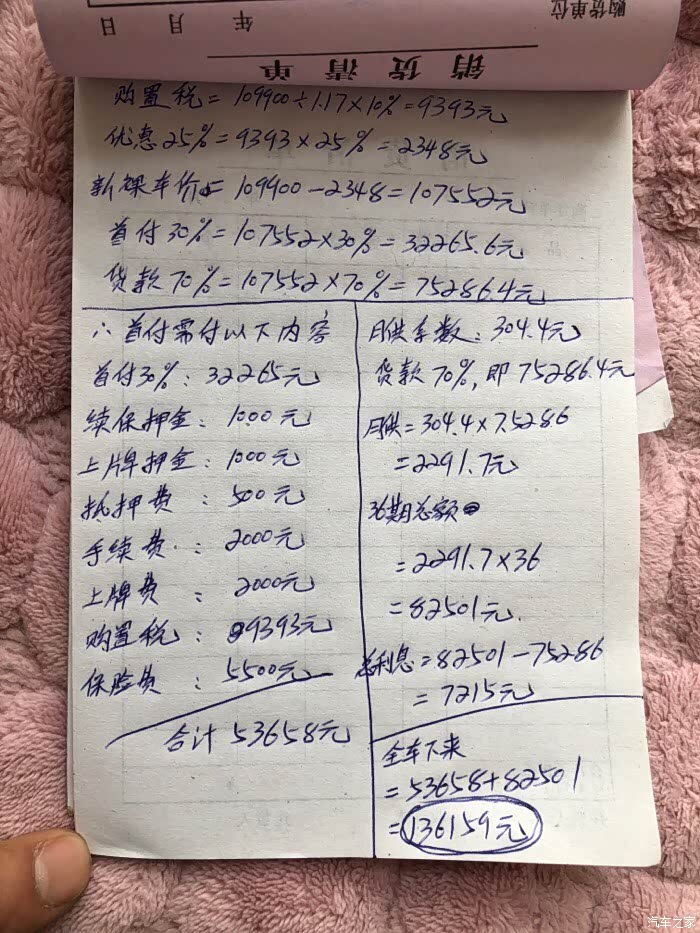 购货单位
年 月 日
销货清单
购置税=109900÷1.17×10%=9393元
优惠25%=9393×25%=2348元
新裸车价=109900-2348=107552元
首付30%=107552×30%=32265.6元
货款70%=107552×70%=75286.4元
∴首付需付以下内容
首付30%:32265元
续保押金:1000元
上牌押金:1000元
抵押费:500元
手续费:2000元
上牌费:2000元
购置税:9393元
保险费:5500元
合计53658元
月供系数:304.4元
货款70%,即75286.4元
月供=304.4×7.5286
=2291.7元
36期总额
=2291.7×36
=82501元.
总利息=82501-75286
=7215元
全车下来
=53658+82501
=136159元
汽车之家